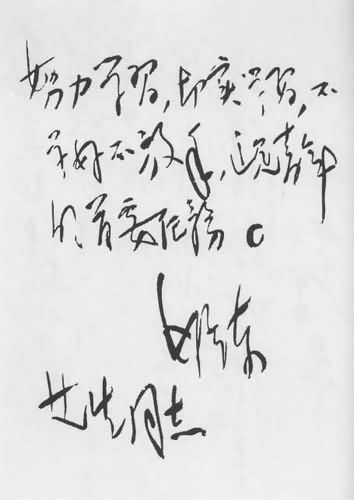 努力学习，切实学习，不
学好不放手，这是青年
的首要任务。
同志